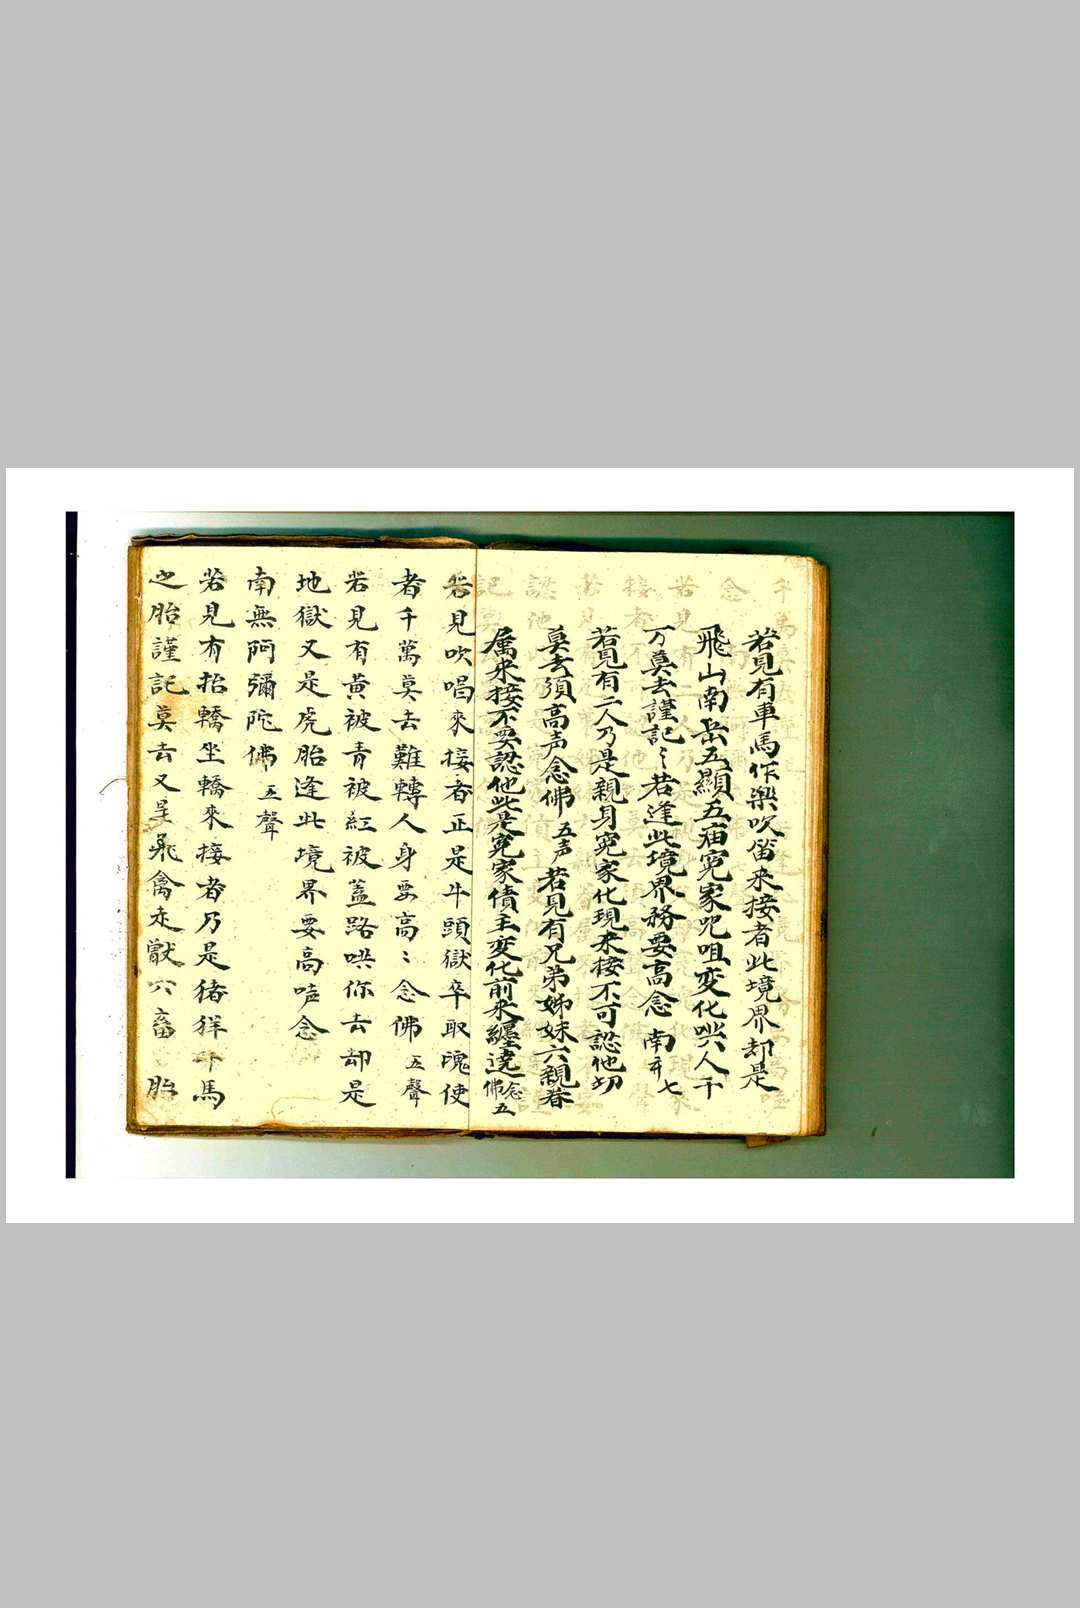 若見有車馬作樂吹笛来接者此境界却是
飛山南岳五顯五庙冤家咒咀变化哄人千
万莫去謹記〻若逢此境界務要高念 南無七
若見有二人乃是親身冤家化現来接不可認他切
莫去須高声念佛 五声 若見有兄弟姊妹六親眷
属来接不要認他此是冤家債主变化前来纏遶 念佛五
若見吹唱來接者正是牛頭獄卒取魂使
者千萬莫去難轉人身要高〻念佛 五聲
若見有黄被青被紅被蓋路哄你去却是
地獄又是虎胎逢此境界要高聲念
南無阿彌陀佛 五聲
若見有抬轎坐轎來接者乃是猪羊牛馬
之胎謹記莫去又是飛禽走獸六畜 胎